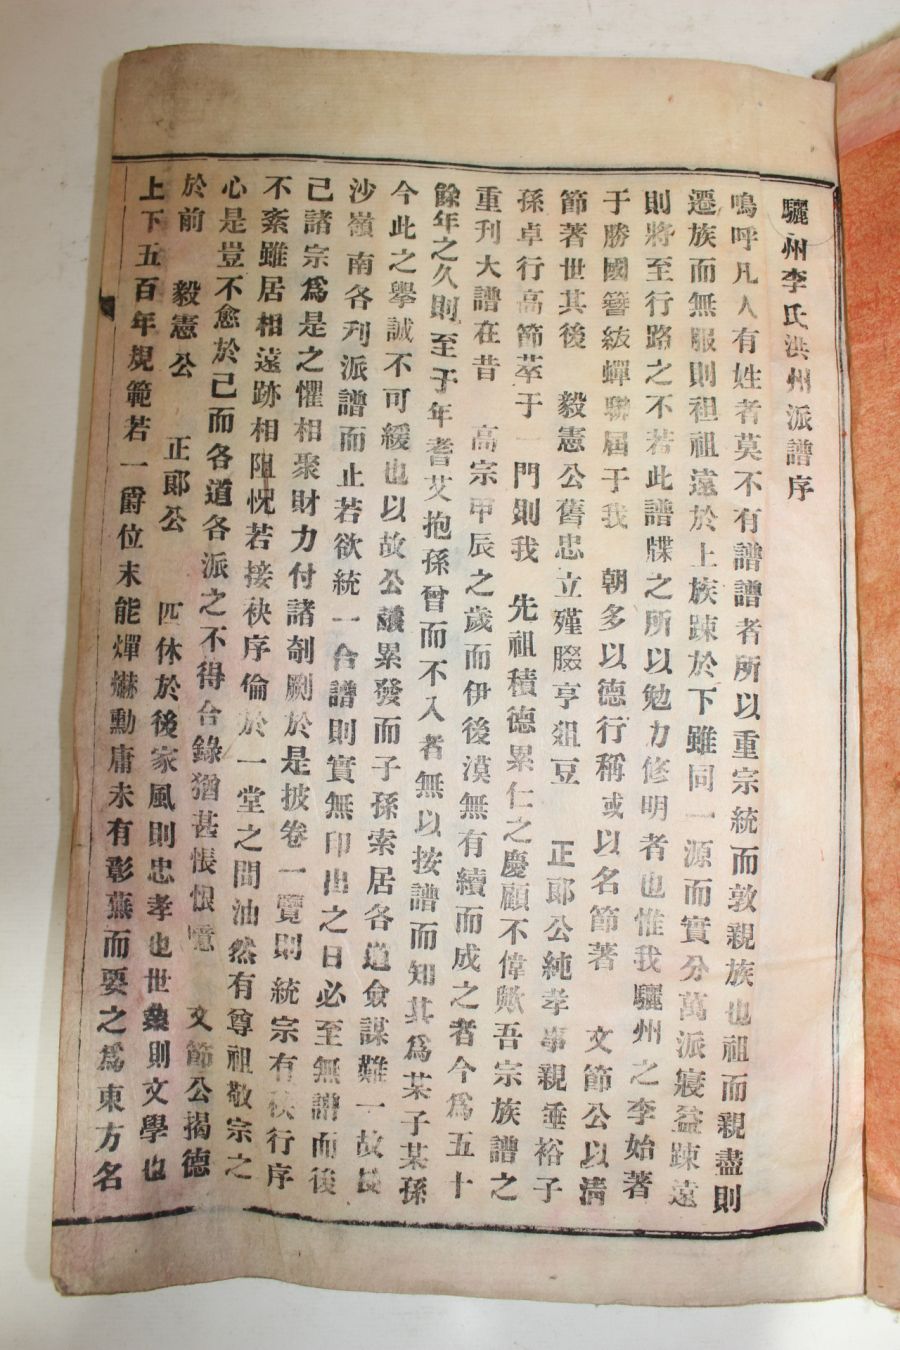 驪州李氏洪州派譜序
嗚呼凡人有姓者莫不有譜譜者所以重宗統而敦親族也祖而親盡則
遷族而無服則祖祖遠於上族踈於下雖同一源而實分萬派寢益踈遠
則將至行路之不若此譜牒之所以勉力修明者也惟我驪州之李始著
于勝國簪紱蟬聯屆于我 朝多以德行稱或以名節著 文節公以淸
節著世其後 毅憲公舊忠立殣腏亨俎豆 正郞公純孝事親垂裕子
孫卓行高節萃于一門則我 先祖積德累仁之慶顧不偉歟吾宗族譜之
重刊大譜在昔 高宗甲辰之歲而伊後漠無有續而成之者今爲五十
餘年之久則至于年耆艾抱孫曾而不入者無以按譜而知其爲某子某孫
今此之擧誠不可緩也以故公議累發而子孫索居各道僉謀難一故長
沙嶺南各刋派譜而止若欲統一合譜則實無印出之日必至無譜而後
已諸宗爲是之懼相聚財力付諸剞劂於是披卷一覽則統宗有秩行序
不紊雖居相遠跡相阻怳若接袂序倫於一堂之間油然有尊祖敬宗之
心是豈不愈於已而各道各派之不得合錄猶甚悵恨噫 文節公揭德
於前 毅憲公 正郞公 匹休於後家風則忠孝也世業則文學也
上下五百年規範若一爵位未能燀爀勳庸未有彰蕪而要之爲東方名